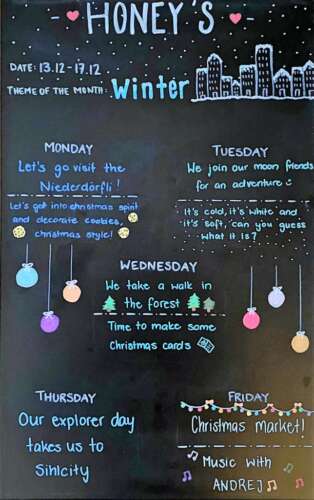 HONEY'S
DATE: 13.12-17.12
THEME OF THE MONTH: Winter
MONDAY
Let's go visit the
Niederdörfli!
Let's get into christmas spirit
and decorate cookies,
christmas style!
TUESDAY
We join our moon friends
for an adventure
It's cold, it's white and
it's soft, can you guess
what it is?
WEDNESDAY
We take a walk in
the forest
Time to make some
Christmas cards
THURSDAY
Our explorer day
takes us to
Sihlcity
FRIDAY
Christmas market!
Music with
ANDREJ